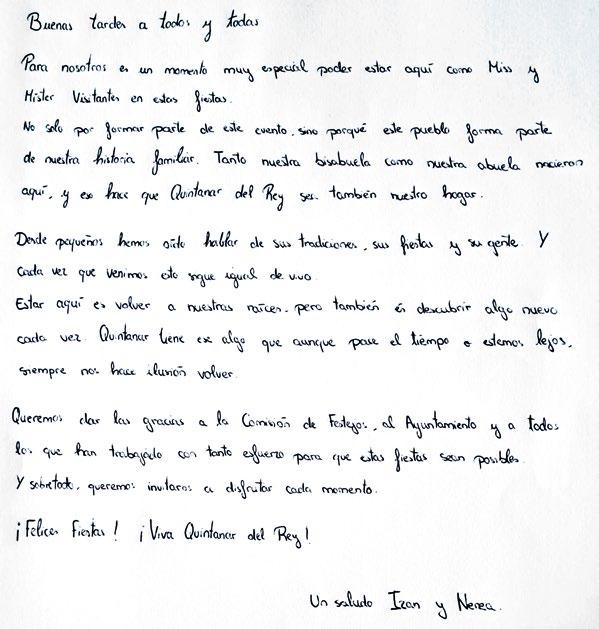 Buenas tardes a todos y todas
Para nosotros es un momento muy especial poder estar aquí como Miss y
Mister Visitantes en estas fiestas.
No solo por formar parte de este cuento, sino porqué este pueblo forma parte
de nuestra historia familiar. Tanto nuestra bisabuela como nuestra abuela nacieron
aquí, y eso hace que Quintanar del Rey sea también nuestro hogar.
Desde pequeños hemos oído hablar de sus tradiciones, sus fiestas y su gente. Y
cada vez que venimos esto sigue igual de vivo.
Estar aquí es volver a nuestras raíces, pero también es descubrir algo nuevo
cada vez. Quintanar tiene ese algo que aunque pase el tiempo o estemos lejos,
siempre nos hace ilusión volver.
Queremos dar las gracias a la Comisión de Festejos, al Ayuntamiento y a todos
los que han trabajado con tanto esfuerzo para que estas fiestas sean posibles.
Y sobretodo, queremos invitaros a disfrutar cada momento.
¡Felices Fiestas! ¡Viva Quintanar del Rey!
Un saludo Izan y Nerea.